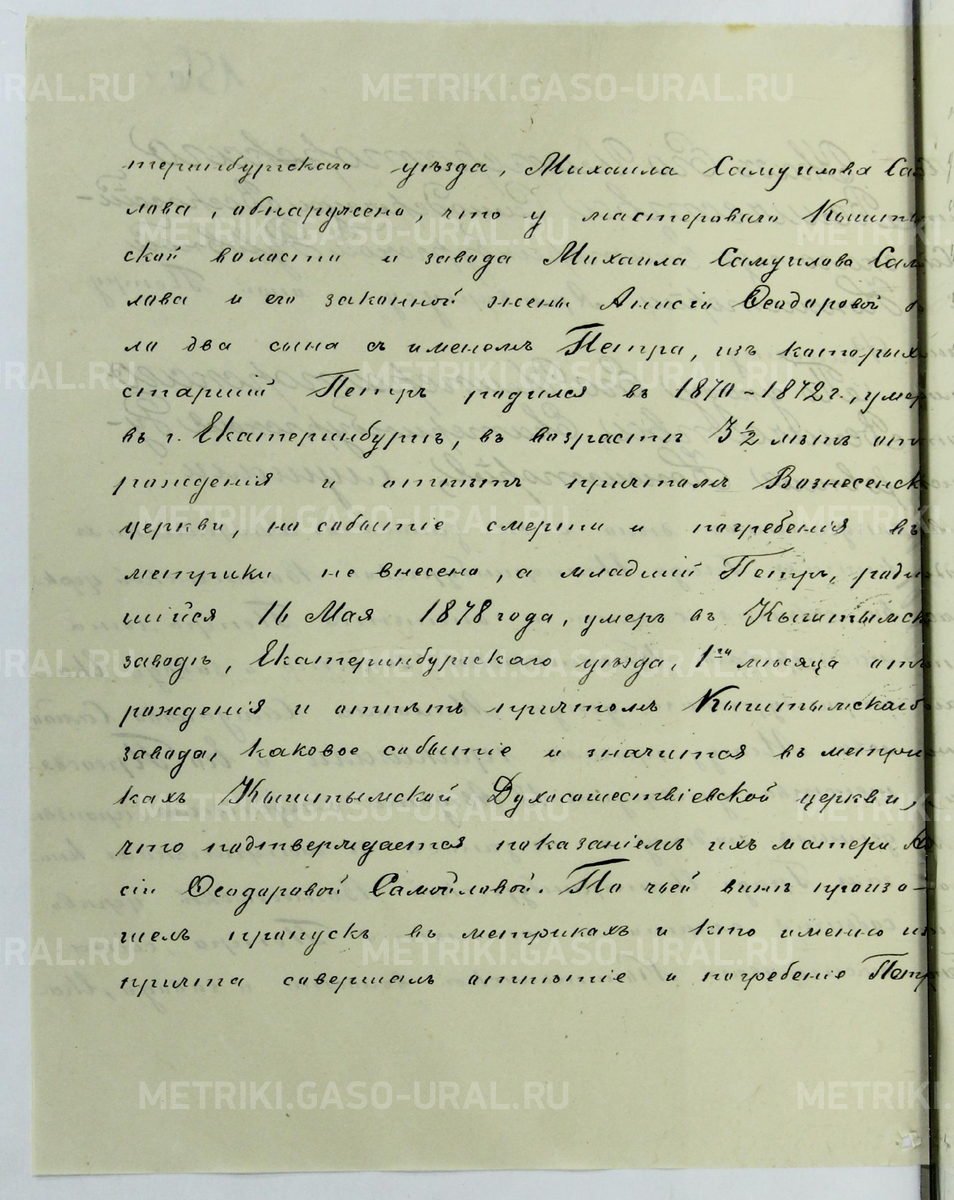 теринбургскаго уѣзда, Михаила Самуилова Сам
лова, обнаружено, что у мастероваго Кышты
ской волости и завода Михаила Самуилова Сам
лова и его законной жены Анисіи Ѳеодоровой бы
ло два сына съ именемъ Петра, изъ которыхъ
старшій Петръ родился въ 1870-1872 г., умер
въ г. Екатеринбургѣ, въ возрастѣ 3½ лѣтъ отъ
рожденія и отпѣтъ причтомъ Вознесенск
церкви, но событіе смерти и погребенія въ
метрики не внесено, а младшій Петръ, роди
шійся 16 Мая 1878 года, умеръ въ Кыштымск
заводѣ, Екатеринбургскаго уѣзда, 1го мѣсяца отъ
рожденія и отпѣтъ причтомъ Кыштымскаго
завода, каковое событіе и значится въ метри
кахъ Кыштымской Духосошествіевской церкви,
что подтверждается показаніемъ ихъ матери Ани
сіи Ѳеодоровой Самойловой. По чьей винѣ произо-
шелъ пропускъ въ метрикахъ и кто именно из
причта совершалъ отпѣтіе и погребеніе Петр
METRIKI.GASO-URAL.RU